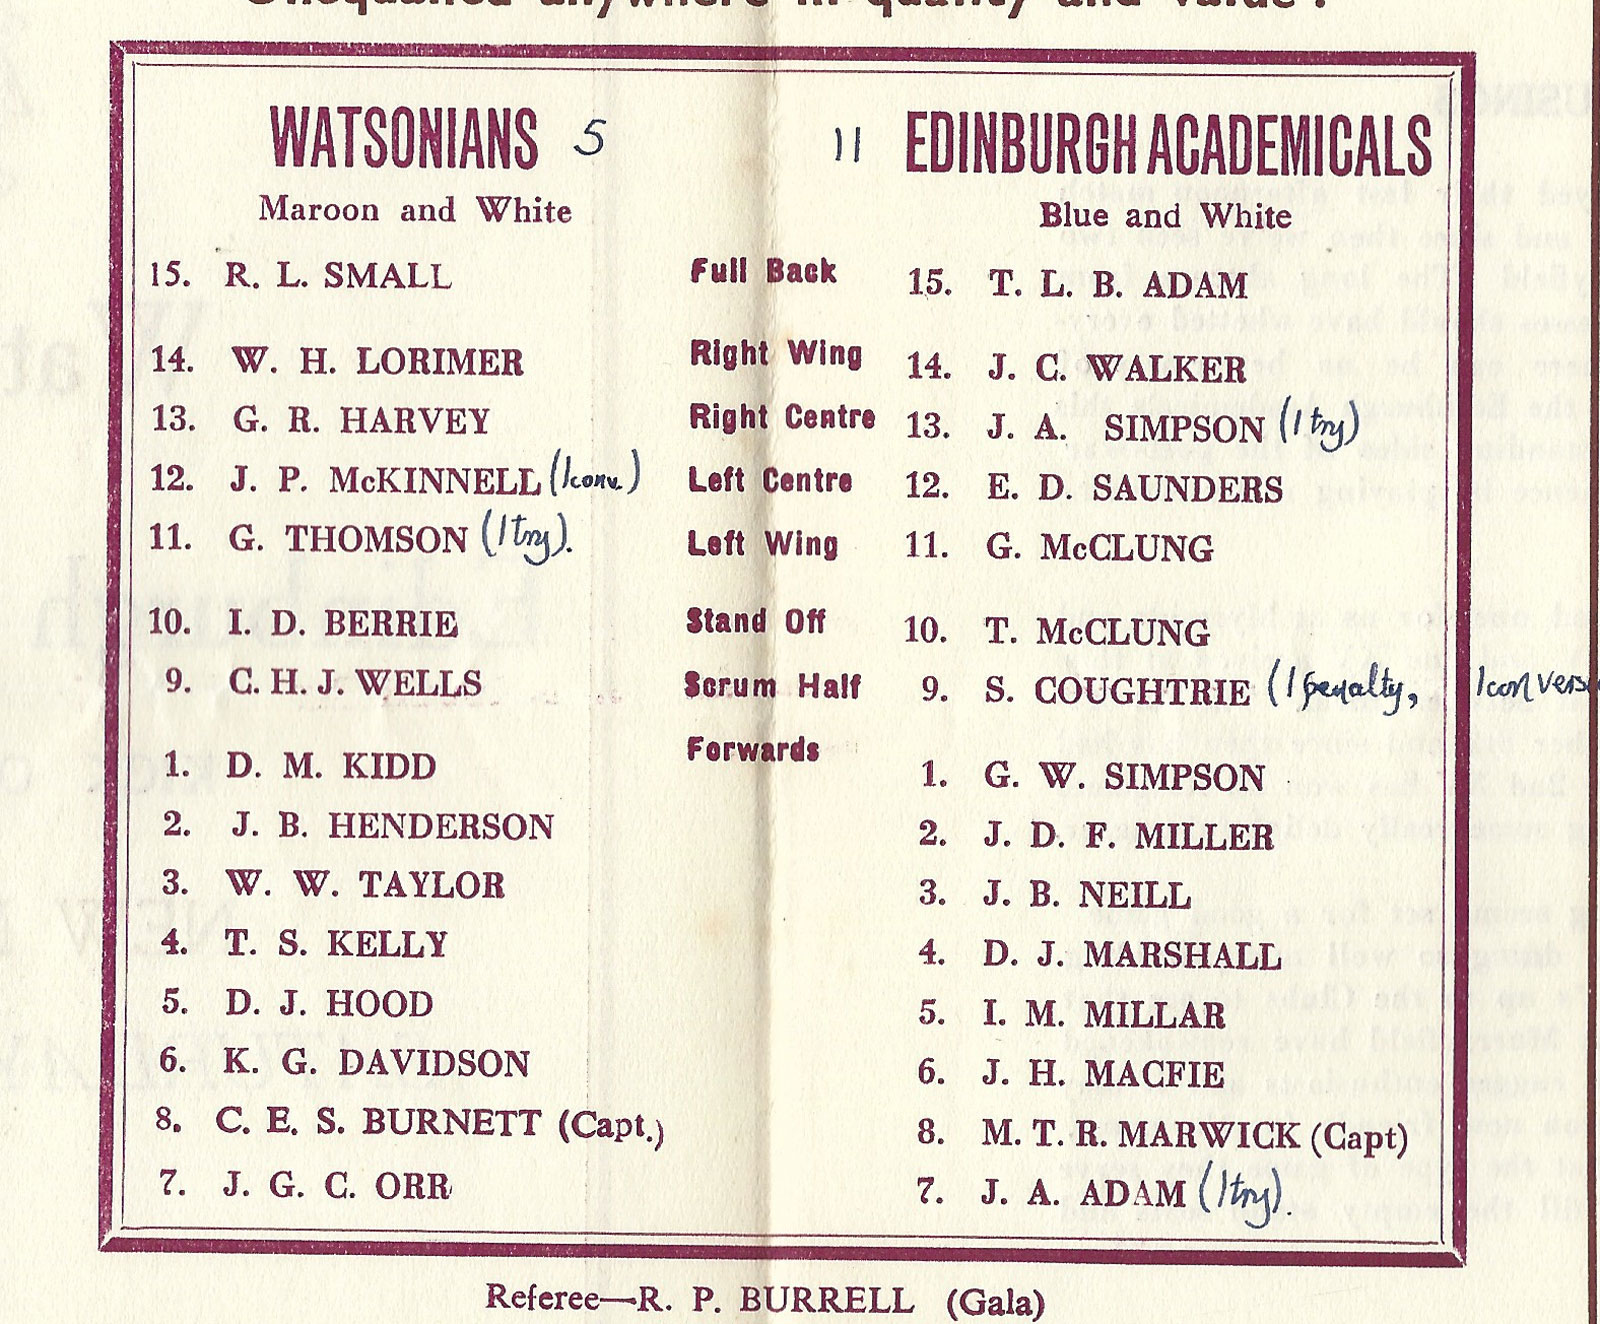 Unequalled anywhere in quality and value .
WATSONIANS 5
Maroon and White
11 EDINBURGH ACADEMICALS
Blue and White
15. R. L. SMALL Full Back 15. T. L. B. ADAM
14. W. H. LORIMER Right Wing 14. J. C. WALKER
13. G. R. HARVEY Right Centre 13. J. A. SIMPSON (1 try)
12. J. P. McKINNELL (1conv.) Left Centre 12. E. D. SAUNDERS
11. G. THOMSON (1 try). Left Wing 11. G. McCLUNG
10. I. D. BERRIE Stand Off 10. T. McCLUNG
9. C. H. J. WELLS Scrum Half 9. S. COUGHTRIE (1 penalty, 1 convers
1. D. M. KIDD Forwards 1. G. W. SIMPSON
2. J. B. HENDERSON 2. J. D. F. MILLER
3. W. W. TAYLOR 3. J. B. NEILL
4. T. S. KELLY 4. D. J. MARSHALL
5. D. J. HOOD 5. I. M. MILLAR
6. K. G. DAVIDSON 6. J. H. MACFIE
8. C. E. S. BURNETT (Capt.) 8. M. T. R. MARWICK (Capt)
7. J. G. C. ORR 7. J. A. ADAM (1 try)
Referee—R. P. BURRELL (Gala)